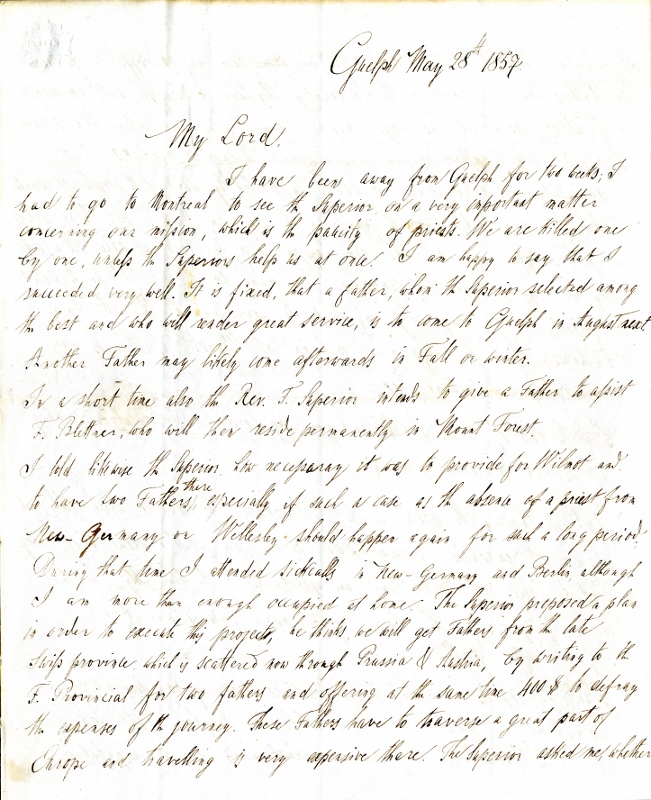 Guelph May 28th 1857.
My Lord,
I have been away from Guelph for two weeks; I
had to go to Montreal to see th Superior on a very important matter
concerning our mission, which is the paucity of priests. We are killed one
by one, unless th Superiors help us at once. I am happy to say that I
succeeded very well. It is fixed, that a father, whom th Superior selected among
th best and who will render great service, is to come to Guelph in August next
Another Father may likely come afterwards in Fall or winter.
In a short time also th Rev. F. Superior intends to give a Father to assist
F. Blettner, who will then reside permanently in Mount Forest.
I told likewise th Superior, how necessaray it was to provide for Wilmot and
to have two Fathers there, especially if such a case as th absence of a priest from
New-Germany or Wellesley should happen again for such a long period.
During that time I attended sickcalls in New-Germany and Berlin, although
I am more than enough occupied at home. The Superior proposed a plan
in order to execute this project, he thinks we will get Fathers from the late
Swiss province which is scattered now through Prussia & Austria, by writing to th
F. Provincial for two fathers and offering at the same time 400 $ to defray
th expenses of th journey. These Fathers have to traverse a great part of
Europe and travelling is very expensive there. The Superior asked me, whether